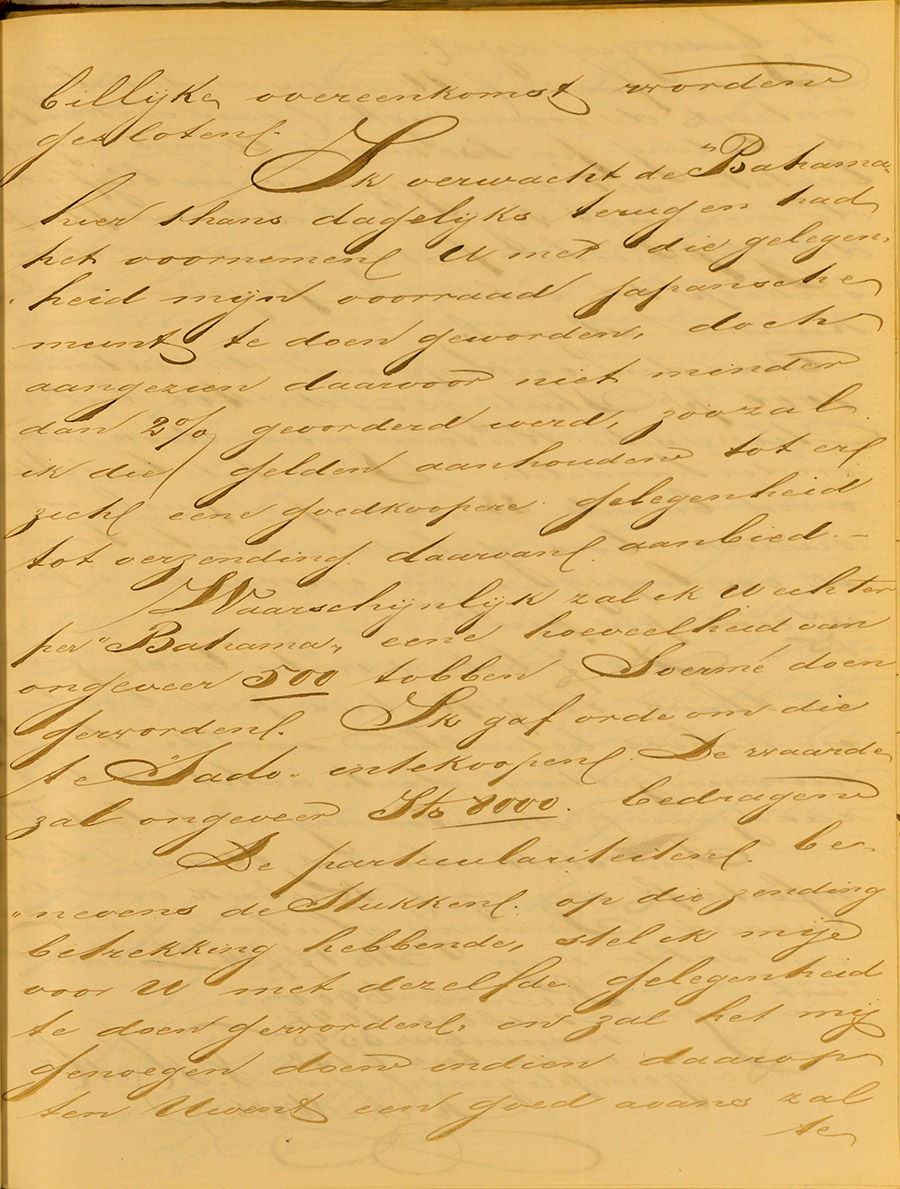 billijke overeenkomst worden
gesloten.
Ik verwacht de "Bahama"
hier thans dagelijks terug en had
het voornemen U met die gelegen-
"heid mijn voorraad Japansche
munt te doen geworden, doch
aangezien daarvoor niet minder
dan 2% gevorderd werd, zoo zal
ik die gelden aanhouden tot er
zich eene goedkoopere gelegenheid
tot verzending daarvan aanbied. –
Waarschijnlijk zal ik U echter
per "Bahama" eene hoeveelheid van
ongeveer 500 tobben Soermé doen
geworden. Ik gaf orde om die
te "Sado" intekoopen. De waarde
zal ongeveer 8000. bedragen
De particulariteiten be-
"nevens de Stukken op die zending
betrekking hebbende, stel ik mij
voor U met dezelfde gelegenheid
te doen geworden, en zal het mij
genoegen doen indien daarop
ten Uwent een goed avans zal
te